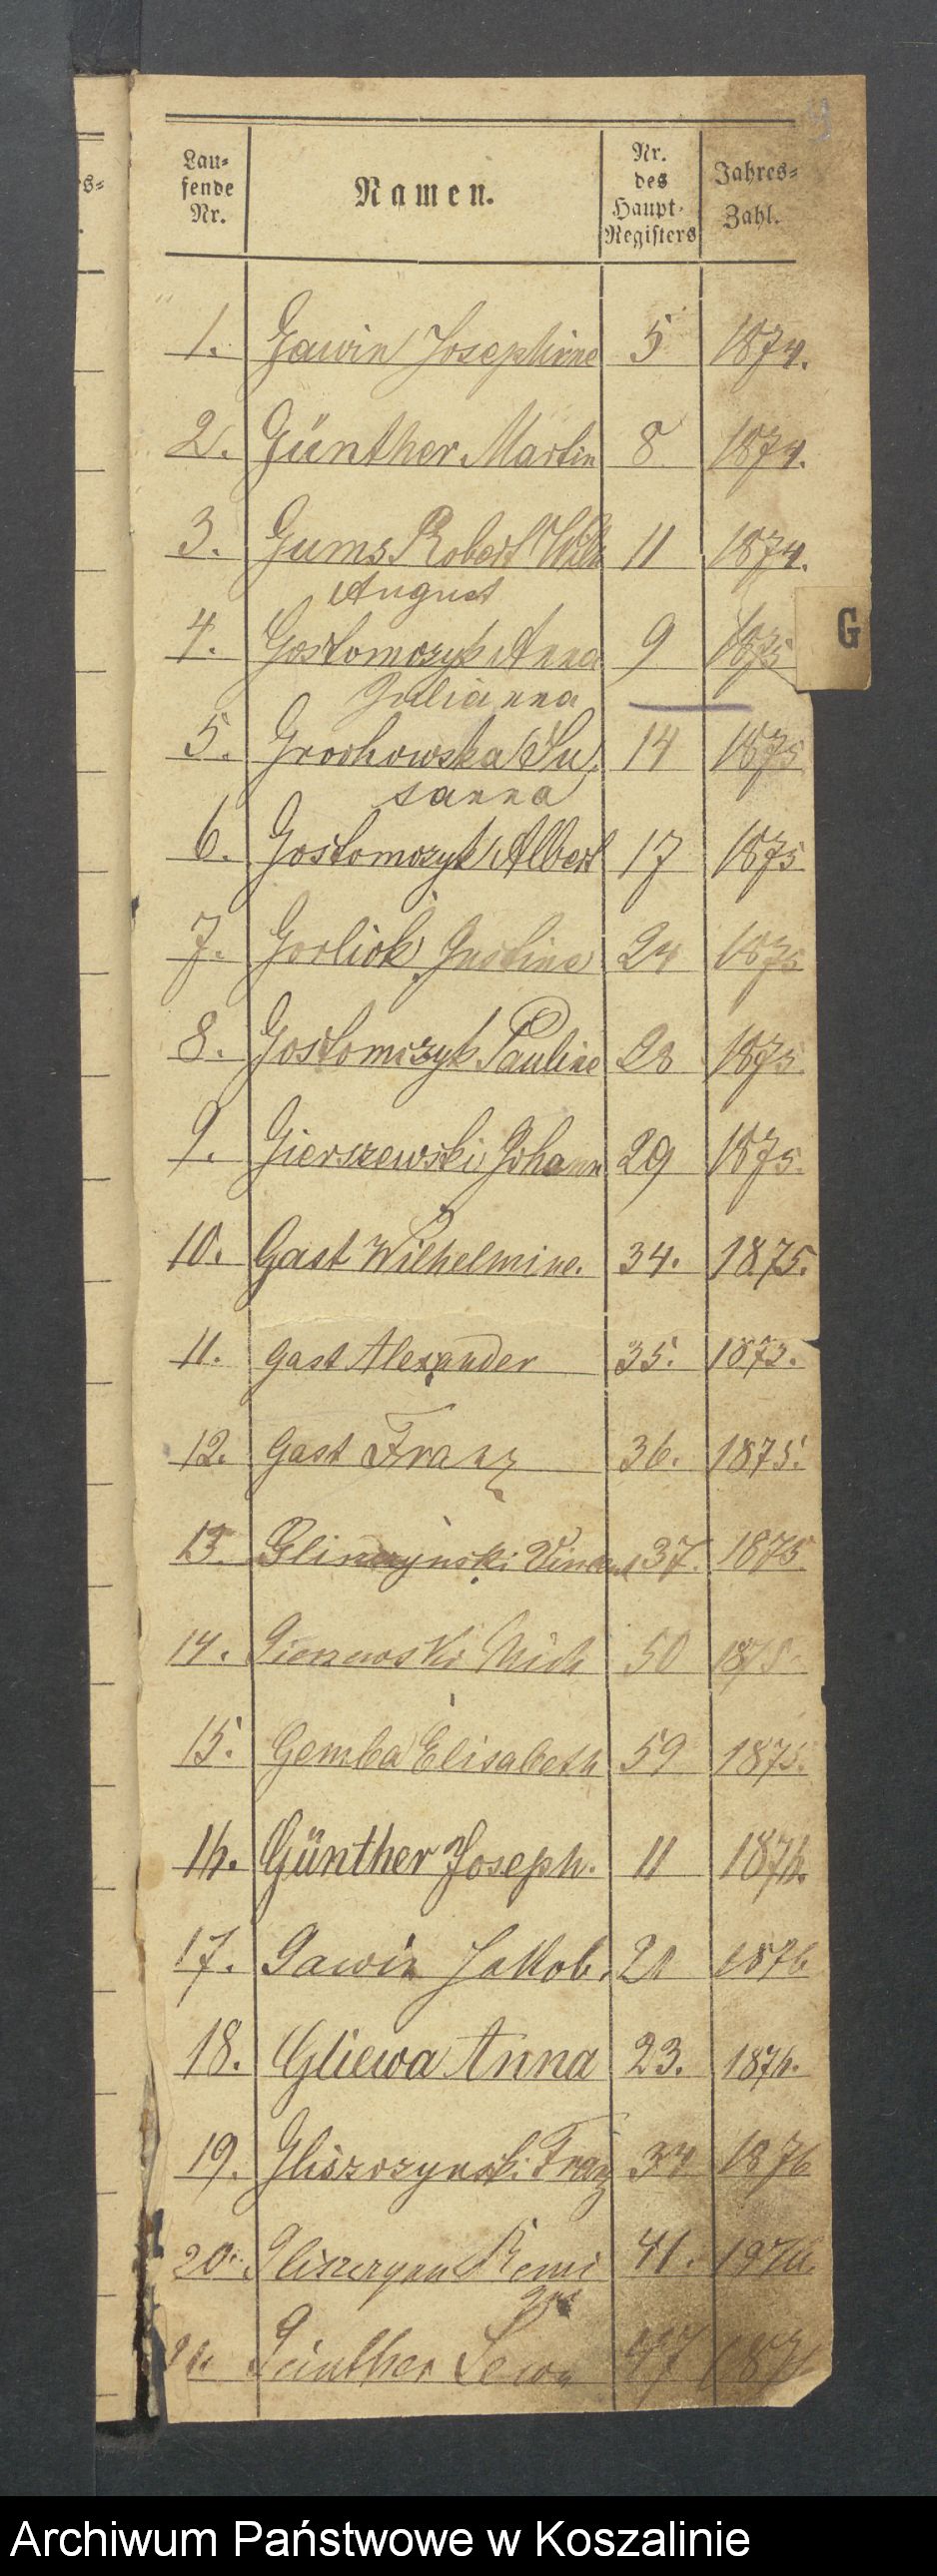 Lau-
fende
Nr.
Namen.
Nr.
des
Haupt-
Registers
Jahres-
Zahl.
1. Gawin Josephine 5 1874.
2. Günther Martin 8 1874.
3. Gums Robert Wilh 11 1874.
August
4. Gostomczyk Anna 9 1875
Julianna
5. Grochowska Su 14 1875
sanna
6. Gostomczyk Albert 17 1875
7. Gorlick Justine 24 1875
8. Gostomczyk Pauline 28 1875
9. Gierszewski Johann 29 1875.
10. Gast Wilhelmine. 34. 1875.
11. Gast Alexander 35. 1875.
12. Gast Franz 36. 1875.
13. Gliszczynski 37. 1875
14. Mich 50 1875
15. Gemba Elisabeth 59 1875.
16. Günther Joseph. 11 1876.
17. Gawin Jakob. 21 1876
18. Gliewa Anna 23. 1876.
19. Gliszczynski Franz 34 1876
20. 41. 1876.
Günther 47
G
Archiwum Państwowe w Koszalinie